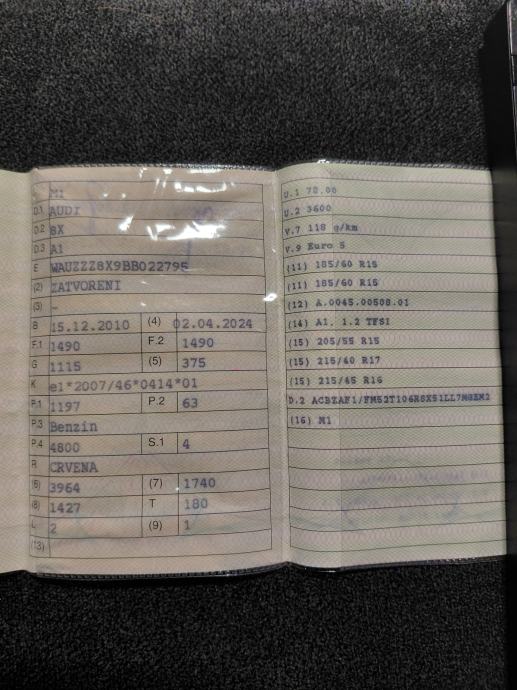 M1
D.1 AUDI
D.2 8X
D.3 A1
E WAUZZZ8X9BB022795
(2) ZATVORENI
(3) -
B 15.12.2010 (4) 02.04.2024
F.1 1490 F.2 1490
G 1115 (5) 375
K e1*2007/46*0414*01
P.1 1197 P.2 63
P.3 Benzin
P.4 4800 S.1 4
R CRVENA
(6) 3964 (7) 1740
(8) 1427 T 180
L 2 (9) 1
(13)
U.1 78.00
U.2 3600
V.7 118 g/km
V.9 Euro 5
(11) 185/60 R15
(11) 185/60 R15
(12) A.0045.00508.01
(14) A1. 1.2 TFSI
(15) 205/55 R15
(15) 215/40 R17
(15) 215/45 R16
(16) M1